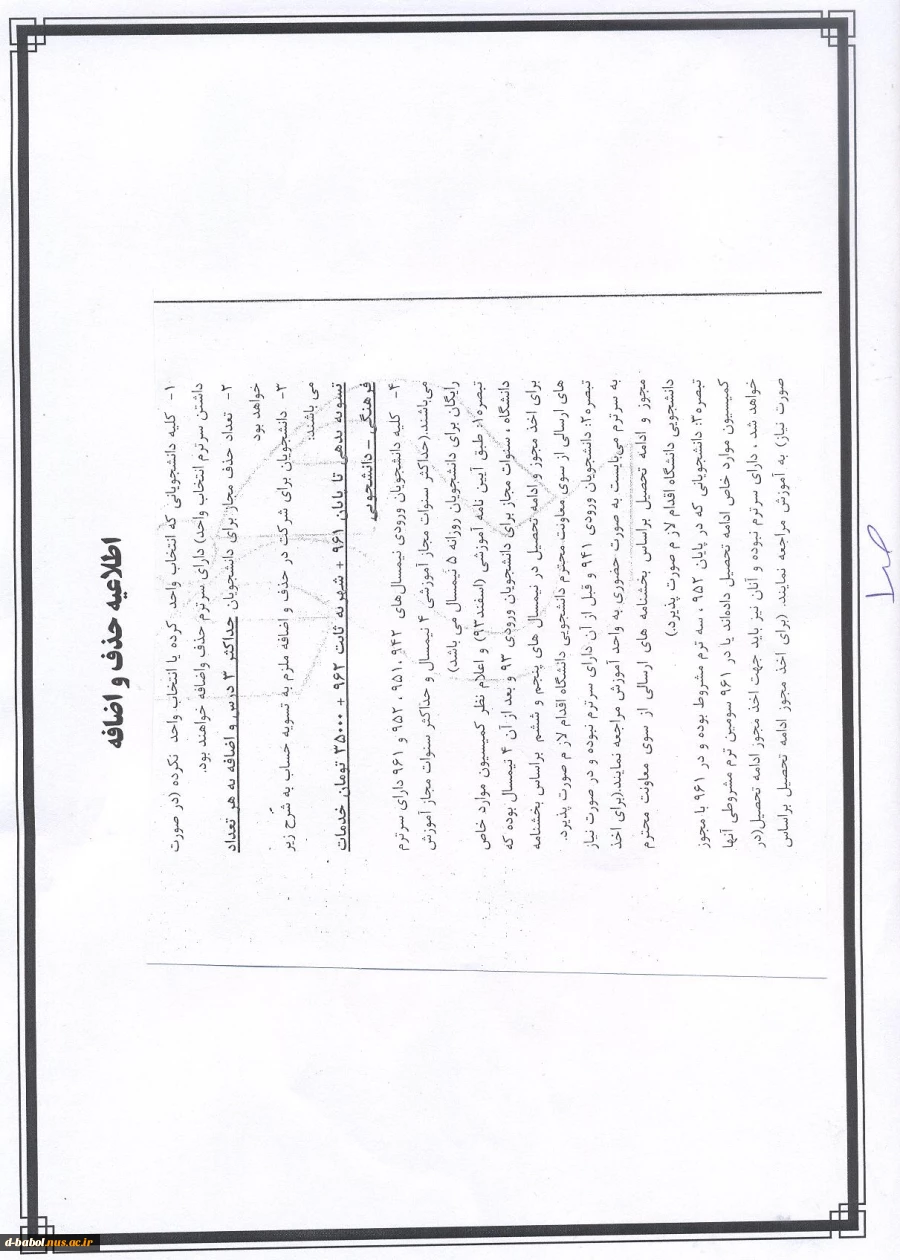 اطلاعیه حذف و اضافه
۱- کلیه دانشجویانی که انتخاب واحد کرده یا انتخاب واحد نکرده (در صورت
داشتن سرترم انتخاب واحد) دارای سرترم حذف واضافه خواهند بود.
۲- تعداد حذف مجاز برای دانشجویان حداکثر ۳ درس و اضافه به هر تعداد
خواهد بود
۳- دانشجویان برای شرکت در حذف و اضافه ملزم به تسویه حساب به شرح زیر
می باشند:
تسویه بدهی تا پایان ۹۶۱ + شهریه ثابت ۹۶۲ + ۳۵۰۰۰ تومان خدمات
فرهنگی – دانشجویی
۴- کلیه دانشجویان ورودی نیمسال‌های ۹۴۲، ۹۵۱، ۹۵۲ و ۹۶۱ دارای سرترم
می‌باشند.(حداکثر سنوات مجاز آموزشی ۴ نیمسال و حداکثر سنوات مجاز آموزش
رایگان برای دانشجویان روزانه ۵ نیمسال می باشد)
تبصره۱: طبق آیین نامه آموزشی (اسفند۹۳) و اعلام نظر کمیسیون موارد خاص
دانشگاه ، سنوات مجاز برای دانشجویان ورودی ۹۳ و بعد از آن ۴ نیمسال بوده که
برای اخذ مجوز و ادامه تحصیل در نیمسال های پنجم و ششم براساس بخشنامه
های ارسالی از سوی معاونت محترم دانشجویی دانشگاه اقدام لاز م صورت پذیرد.
تبصره۲: دانشجویان ورودی ۹۴۱ و قبل از آن دارای سرترم نبوده و در صورت نیاز
به سرترم می‌بایست به صورت حضوری به واحد آموزش مراجعه نمایند.(برای اخذ
مجوز و ادامه تحصیل براساس بخشنامه های ارسالی از سوی معاونت محترم
دانشجویی دانشگاه اقدام لاز م صورت پذیرد.)
تبصره۳: دانشجویانی که در پایان ۹۵۲ ، سه ترم مشروط بوده و در ۹۶۱ با مجوز
کمیسیون موارد خاص ادامه تحصیل داده‌اند یا در ۹۶۱ سومین ترم مشروطی آنها
خواهد شد ، دارای سرترم نبوده و آنان نیز باید جهت اخذ مجوز ادامه تحصیل(در
صورت نیاز) به آموزش مراجعه نمایند. (برای اخذ مجوز ادامه تحصیل براساس
d-babol.nus.ac.ir